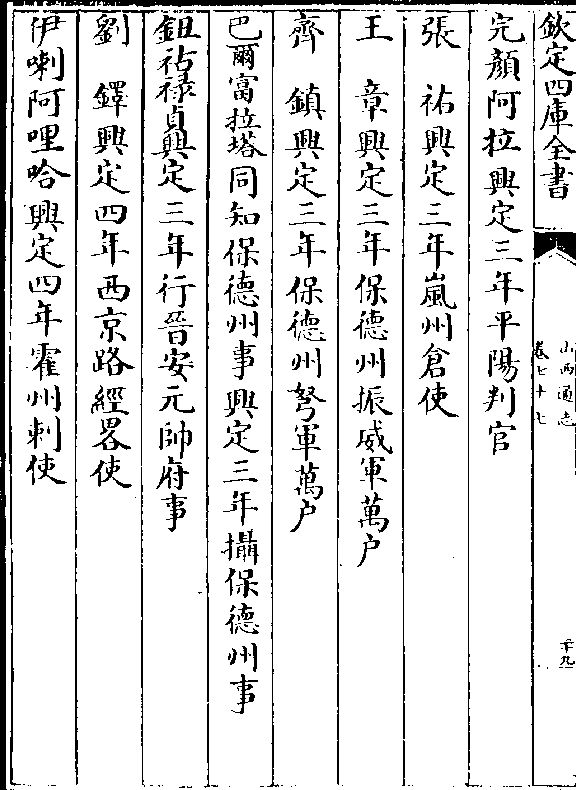 欽定四庫全書
山西通志
卷七十七
三十九
完顔阿拉興定三年平陽判官
張　祐興定三年嵐州倉使
王　章興定三年保德州振威軍萬户
齊　鎮興定三年保德州弩軍萬户
巴爾富拉塔同知保德州事興定三年攝保德州事
鈕祜禄貞興定三年行晉安元帥府事
劉　鐸興定四年西京路經畧使
伊喇阿哩哈興定四年霍州刺使